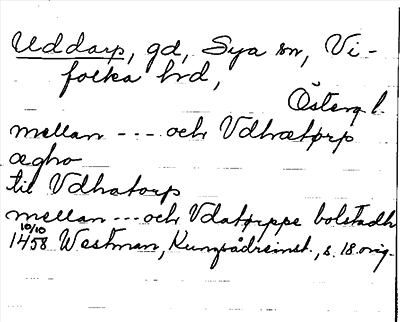 Uddarp, gd, Sya sn, Vi-
folka hd,
Österg l.
mellan --- och Vdhætørp
ægho
til Vdhatorp
mellan --- och Vdatørppe bolstadh
10/10
1458 Westman, Kungsådreinst., s. 18. orig.